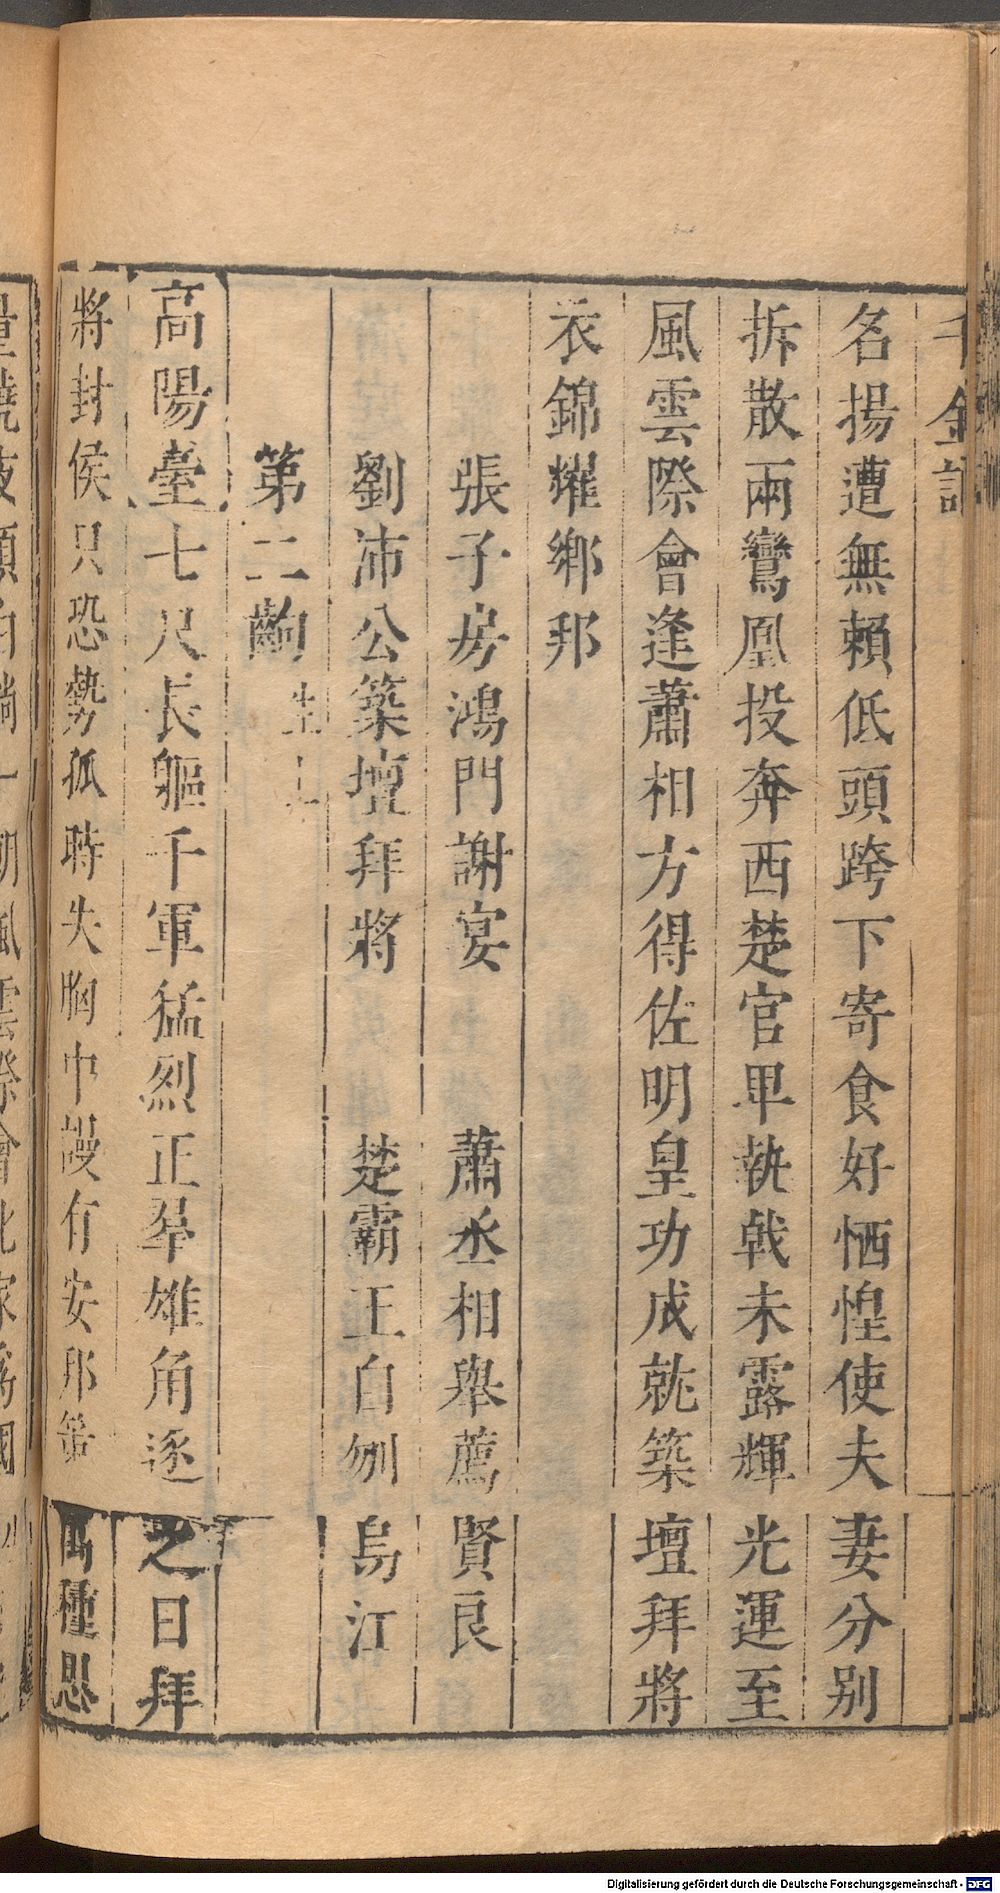 千金記
名揚遭無賴低頭跨下寄食好恓惶使夫妻分别
拆散兩鸞凰投奔西楚官卑執戟未露輝光運至
風雲際會逢蕭相方得佐明皇功成就築壇拜將
衣錦耀鄉邦
張子房鴻門謝宴 蕭丞相舉薦賢良
劉沛公築壇拜將 楚霸王自刎烏江
第二齣 生上
高陽臺七尺長軀千軍猛烈正羣雄角逐之日拜
將封侯只恐勢孤時失胸中謾有安邦策 種思
朝風雲際會化家爲國
Digitalisierung gefördert durch die Deutsche Forschungsgemeinschaft - DFG